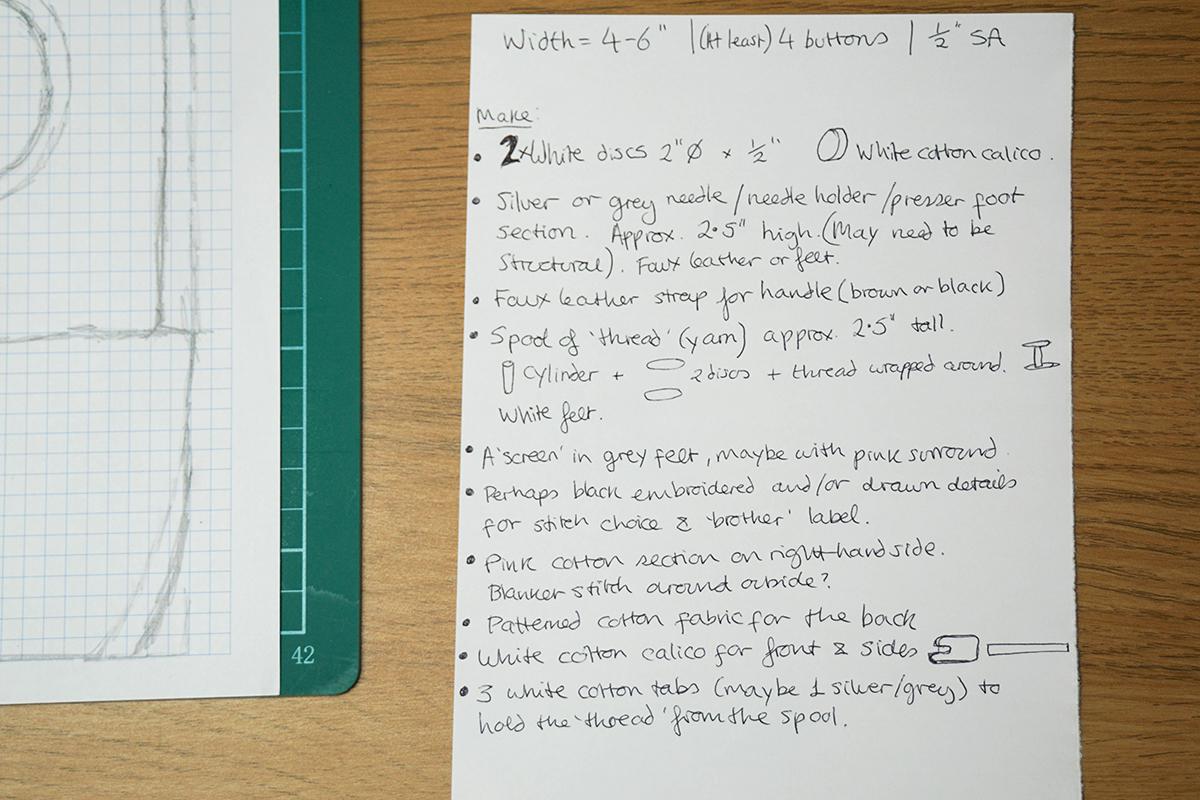 Width = 4-6" | (At least) 4 buttons | ½" SA
Make:
• 2x White discs 2" Ø x ½" White cotton calico.
• Silver or grey needle / needle holder / presser foot
section. Approx. 2.5" high. (May need to be
structural). Faux leather or felt.
• Faux leather strap for handle (brown or black)
• Spool of 'thread' (yarn) approx. 2.5" tall.
cylinder + 2 discs + thread wrapped around.
White felt.
• A 'screen' in grey felt, maybe with pink surround.
• Perhaps black embroidered and/or drawn details
for stitch choice & 'brother' label.
• Pink cotton section on right hand side.
Blanket stitch around outside?
• Patterned cotton fabric for the back
• White cotton calico for front & sides
• 3 white cotton tabs (maybe 1 silver/grey) to
hold the 'thread' from the spool.
42